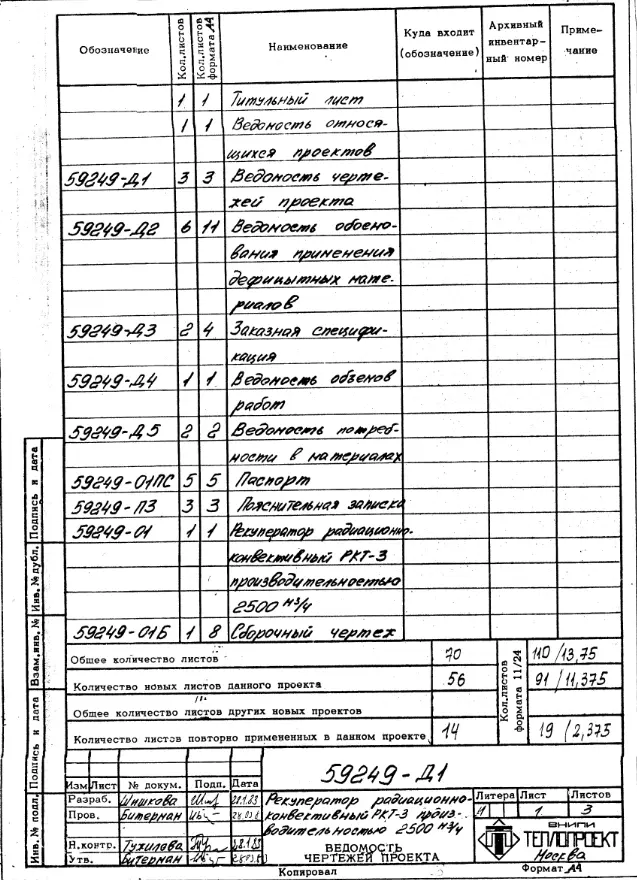 Обозначение Кол.листов Кол.листов формата А4 Наименование Куда входит (обозначение) Архивный инвентар- ный номер Приме- чание
1 1 Титульный лист
1 1 Ведомость относя-
щихся проектов
59249-Д1 3 3 Ведомость черте-
жей проекта
59249-Д2 6 11 Ведомость обосно-
вания применения
дефицытных мате-
риалов
59249-Д3 2 4 Заказная специфи-
кация
59249-Д4 1 1 Ведомость объемов
работ
59249-Д5 2 2 Ведомость потреб-
ности в материалах
59249-01ПС 5 5 Паспорт
59249-ПЗ 3 3 Пояснительная записка
59249-01 1 1 Рекуператор радиационно-
конвективный РКТ-3
производительностью
2500 м³/ч
59249-01Б 1 8 Сборочный чертеж
Общее количество листов 70 Кол.листов формата 11/24 110/13,75
Количество новых листов данного проекта 56 91/11,375
Общее количество листов других новых проектов
Количество листов повторно примененных в данном проекте 14 19/2,375
59249-Д1
Изм Лист № докум. Подп. Дата
Разраб. Шишкова
Пров. Битерман
Н.контр. Тухилова
Утв. Битерман
Рекуператор радиационно-
конвективный РКТ-3 произ-
водительностью 2500 м³/ч
ВЕДОМОСТЬ
ЧЕРТЕЖЕЙ ПРОЕКТА
Литера Лист Листов
И 1 3
ВНИПИ
ТЕПЛОПРОЕКТ
Москва
Копировал Формат А4
Инв. № подл. Подпись и дата Взам.инв. № Инв. № дубл. Подпись и дата